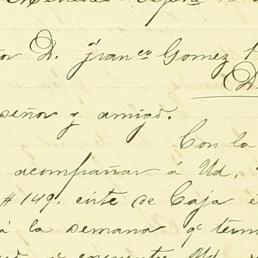 D. Franco Gomez
(D.
señor y amigo.
Con la
acompañar á Ud,
#149. cirte de Caja
á la semana qe